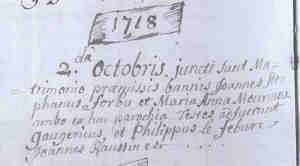 1718
2.da Octobris juncti sunt Ma-
trimonio præmissis bannis Joannes Ste-
phanus Sorbu et Maria Anna
ambo ex hac parochia Testes adfuerunt
Gaugericus, et Philippus le Febure
Joannes Raussin etc